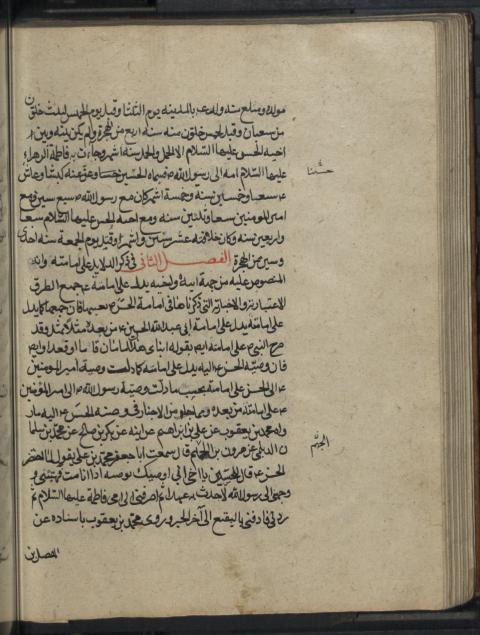 مولده ومبلغ سنه ولد ع بالمدينة يوم الثلثا وقيل يوم الخميس لثلث خلون
من شعبان وقيل لخمس خلون منه سنة اربع من الهجرة ولم يكن بينه وبين
اخيه الحسن عليهما السلام الا الحمل والحمل ستة اشهر وجاءت به فاطمة الزهراء
عليها السلام امه الى رسول الله ص فسماه الحسين وعق عنه كبشا وعاش
ع سبعا وخمسين سنة وخمسة اشهر كان مع رسول الله ص سبع سنين ومع
امير المومنين سبعا وثلثين سنة ومع اخيه الحسن عليهما السلام سبعا
واربعين سنة وكان خلافته عشر سنين واشهرا وقتل يوم الجمعة سنة احدى
وستين من الهجرة الفصل الثانى فى ذكر الدلايل على امامته وانه
المنصوص عليه من جهة ابيه واخيه يدل على امامته ع جميع الطرق
الاعتبارية والاخبارية التى ذكرناها فى امامة الحسن ع بعينها فان جميعها كما يدل
على امامته يدل على امامة ابى عبد الله الحسين ع من بعده مثلا بمثل وقد
صرح النبى ص على امامته ايضا بقوله ابناى هذان امامان قاما او قعدا وايضا
فان وصية الحسن ع اليه يدل على امامته كما دلت وصية امير المومنين
ع الى الحسن على امامته بحسب ما دلت وصية رسول الله ص الى امير المؤمنين
ع على امامته من بعده ومما جاء من الاخبار فى وصية الحسن ع اليه ما ر
واه محمد بن يعقوب عن على بن ابراهيم عن ابيه عن بكر بن صالح عن محمد بن سليما
ن الديلمى عن هرون بن الجهم قال سمعت ابا جعفر محمد بن على يقول لما احتضر
الحسن ع قال للحسين يا اخى انى اوصيك بوصية اذا انا مت فهيئنى و
وجهنى الى رسول الله لاحدث به عهدا ثم اصرفنى الى امى فاطمة عليها السلام ثم
ردنى فادفنى بالبقيع الى آخر الخبر وروى محمد بن يعقوب باسناده عن
المفضل بن
حسينا
الجهم